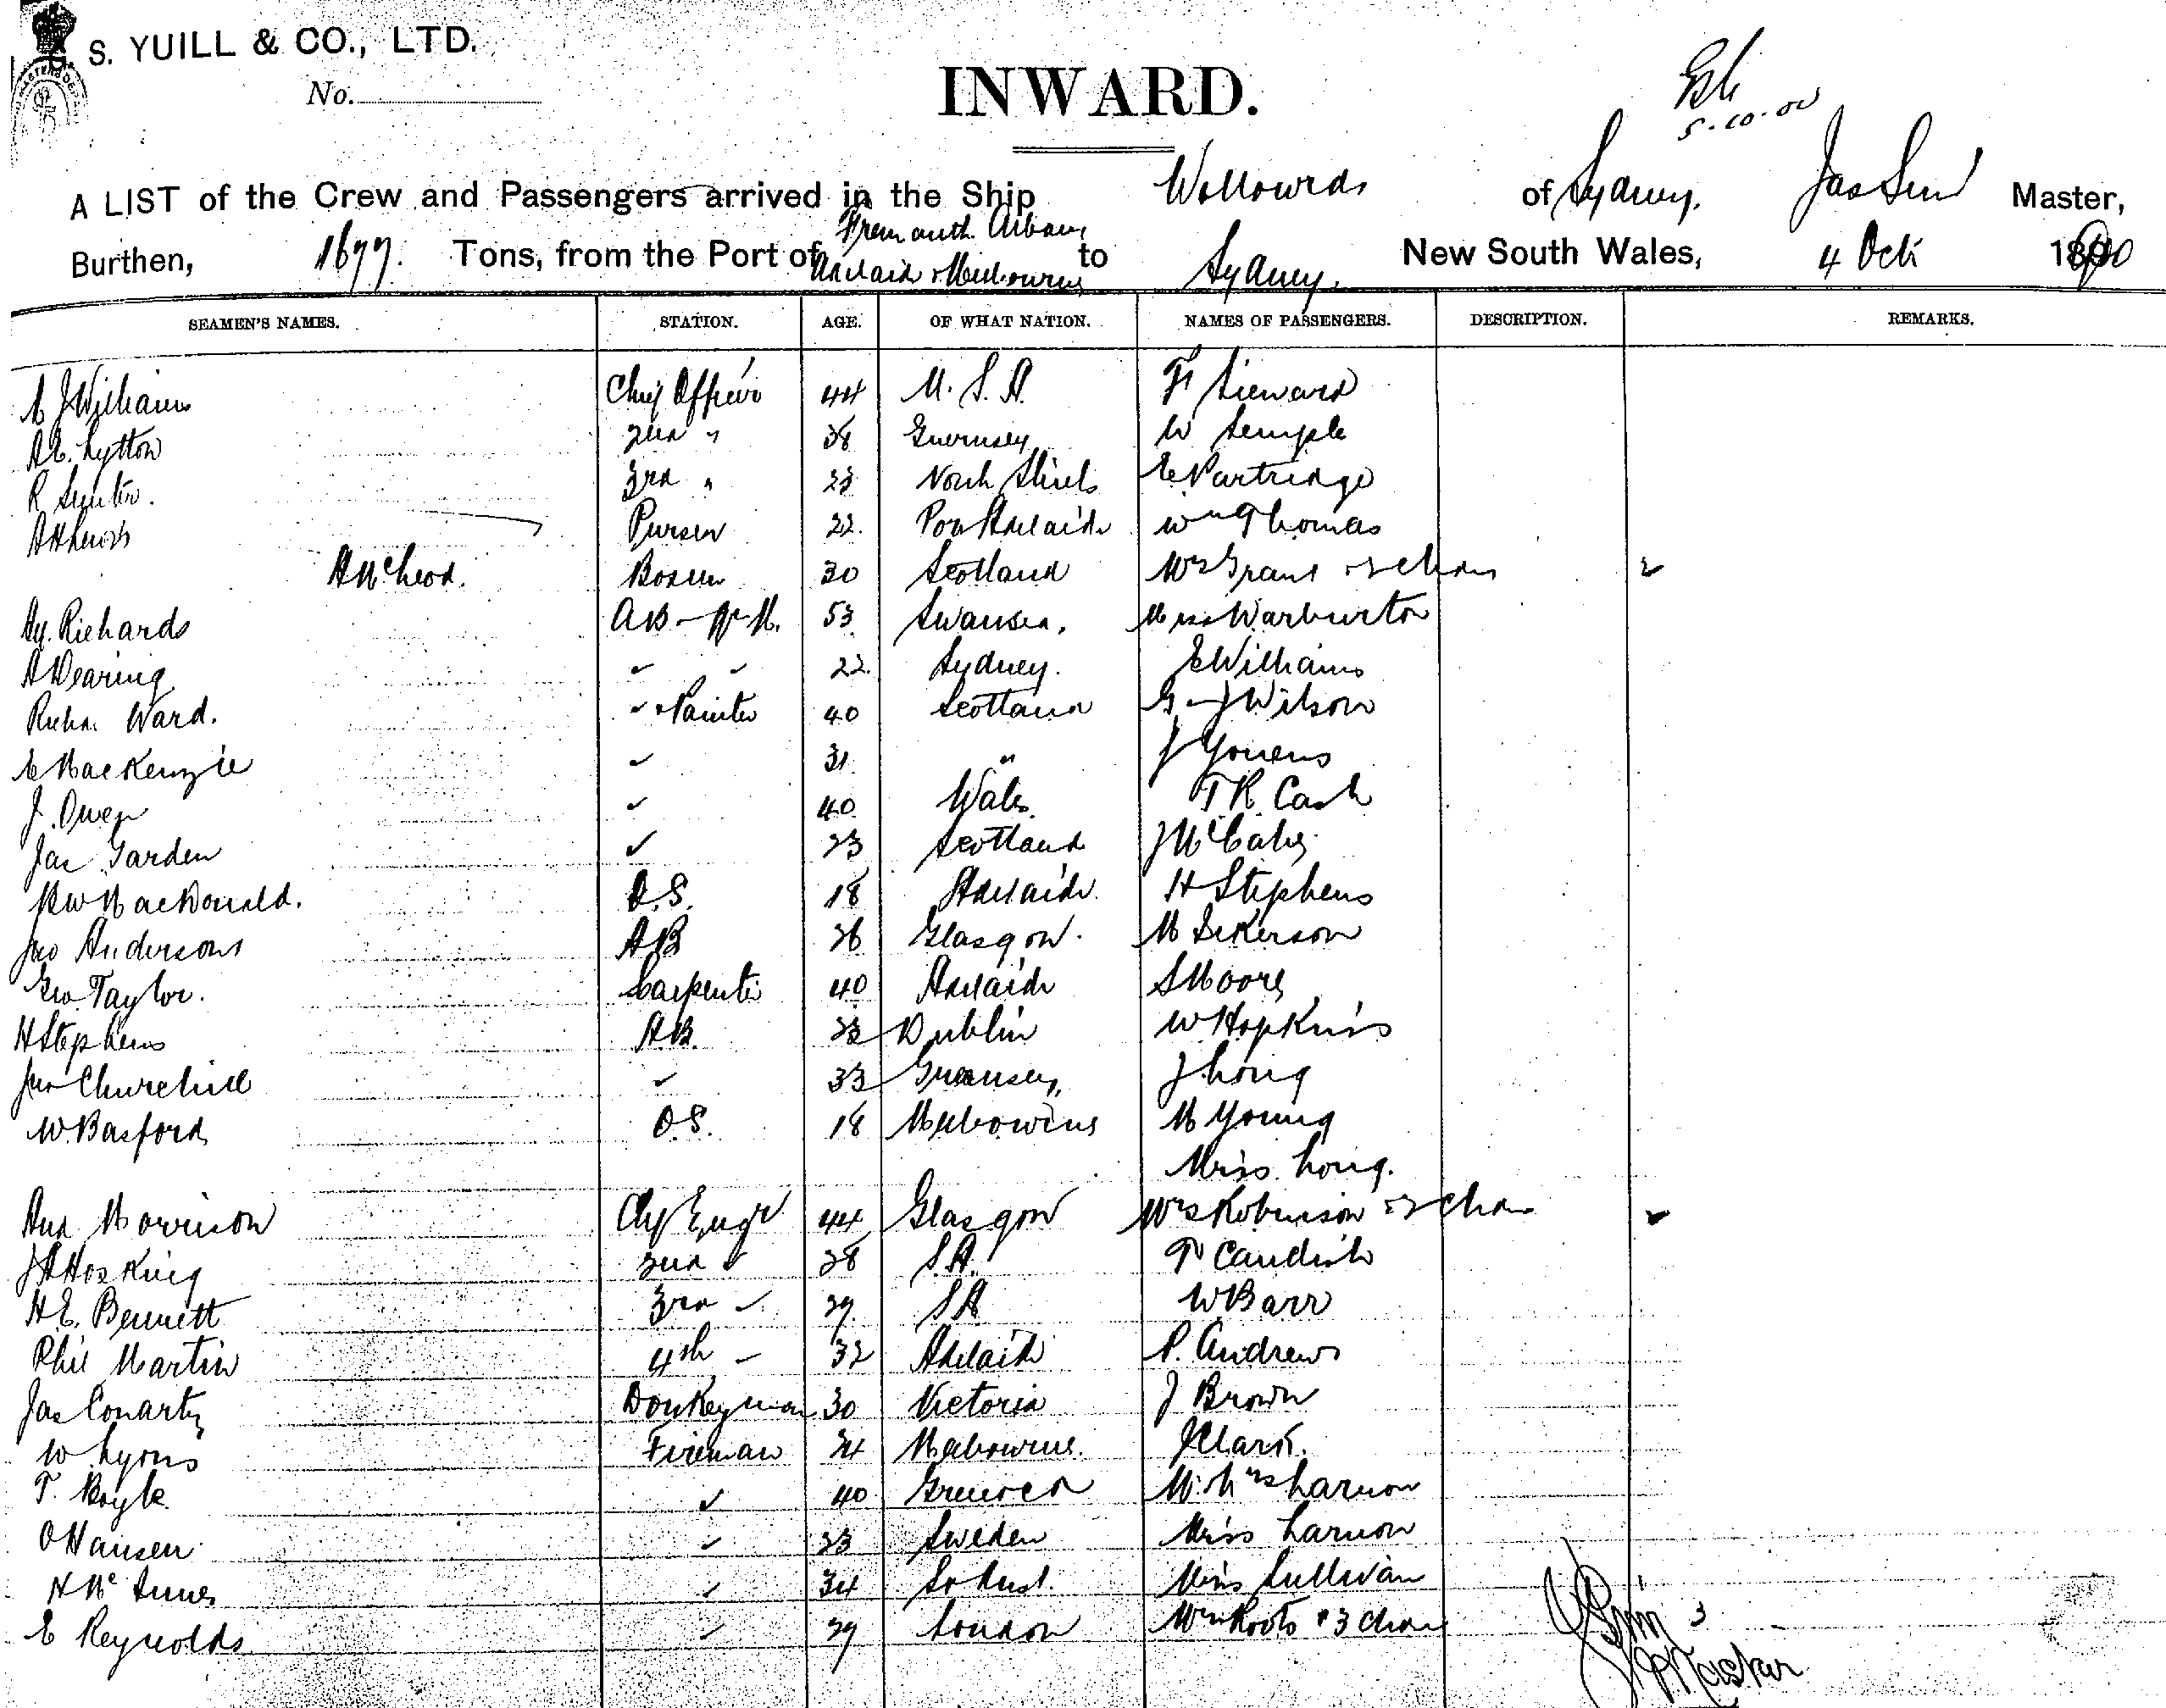 S. YUILL & CO., LTD.
No.
INWARD.
5.10.00
A LIST of the Crew and Passengers arrived in the Ship Wollowra of Sydney, Jas Sim Master,
Burthen, 1677 Tons, from the Port of Fremantle Albany Adelaide & Melbourne to Sydney, New South Wales, 4 Oct 1900
SEAMEN'S NAMES. STATION. AGE. OF WHAT NATION. NAMES OF PASSENGERS. DESCRIPTION. REMARKS.
J Williams Chief Officer 44 U.S.A. F
A E. Lytton 2nd " 38 Guernsey W Temple
R Hunter. 3rd " 23 North Shields E Partridge
Purser 22. Port Adelaide Wm Thomas
A McLeod. Bosun 30 Scotland Mrs Grant & 2 Chdn ✓
Hy. Richards AB 53 Swansea, Miss Warburton
A Dearing " " 22. Sydney. E Williams
Richd. Ward. " Painter 40 Scotland G J Wilson
MacKenzie " 31 " J Youens
J. Owen " 40 Wales. T R. Cash
Jas Garden " 23 Scotland J McCabe
MacDonald. O.S. 18 Adelaide. H Stephens
Jno Anderson AB 26 Glasgow. M
Geo Taylor. Carpenter 40 Adelaide S Moore
H Stephens AB. Dublin W Hopkins
Jno Churchill " 33 Guernsey, J Long
W. Basford O.S. 18 Melbourne M Young
Miss Long.
And Morrison Chf Engr 44 Glasgow Mrs Robinson & 2 Chdn ✓
J A Hosking 2nd " 28 S.A. T Caudish
H E. Bennett 3rd " 29. S A W Barr
Phil Martin 4th " 32 Adelaide P. Andrews
Jas Conarty Donkeyman 30 Victoria J Brown
W Lyons Fireman 24 Melbourne. J Clark.
T. Boyle " 40 Greenock M. Mrs Larnon
O Hansen " 23 Sweden Miss Larnon
H McInnes " 34 Miss Sullivan
E Reynolds " 29 London Mrs Roots & 3 Chdn
J Sim
Master